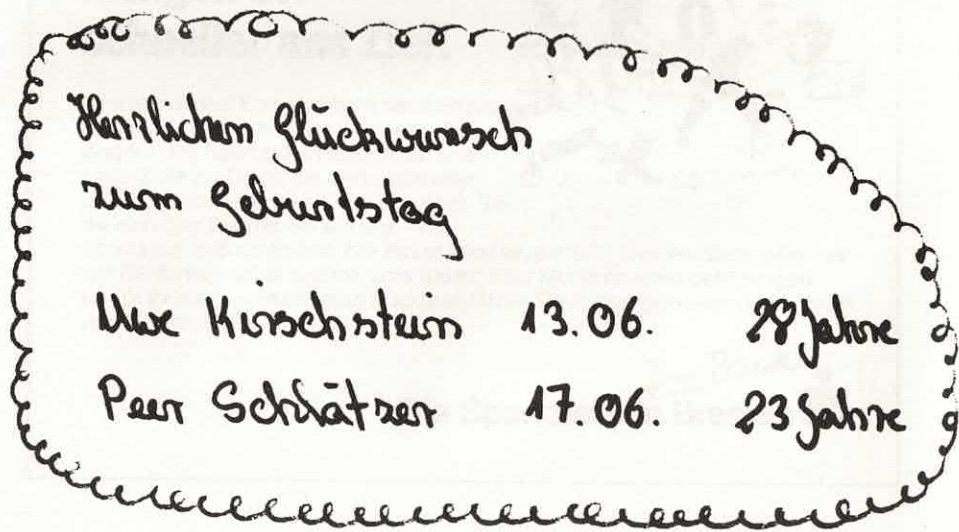 Herzlichen Glückwunsch
zum Geburtstag
Uwe Kirschstein 13.06. 28 Jahre
Peer Schlätzer 17.06. 23 Jahre